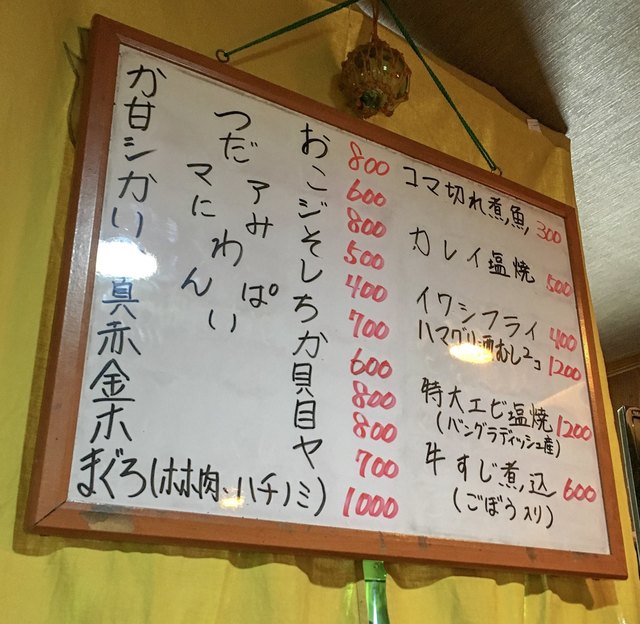 かつお 800
甘だこ 600
シマアジ 800
かにみそ 500
いわし 400
んぱち 700
真いか 600
赤貝 800
金目 800
ホヤ 700
まぐろ(ホホ肉、ハチノミ) 1000
コマ切れ煮魚 300
カレイ塩焼 500
イワシフライ 400
ハマグリ酒むし2コ 1200
特大エビ塩焼 1200
(バングラディッシュ産)
牛すじ煮込 600
(ごぼう入り)